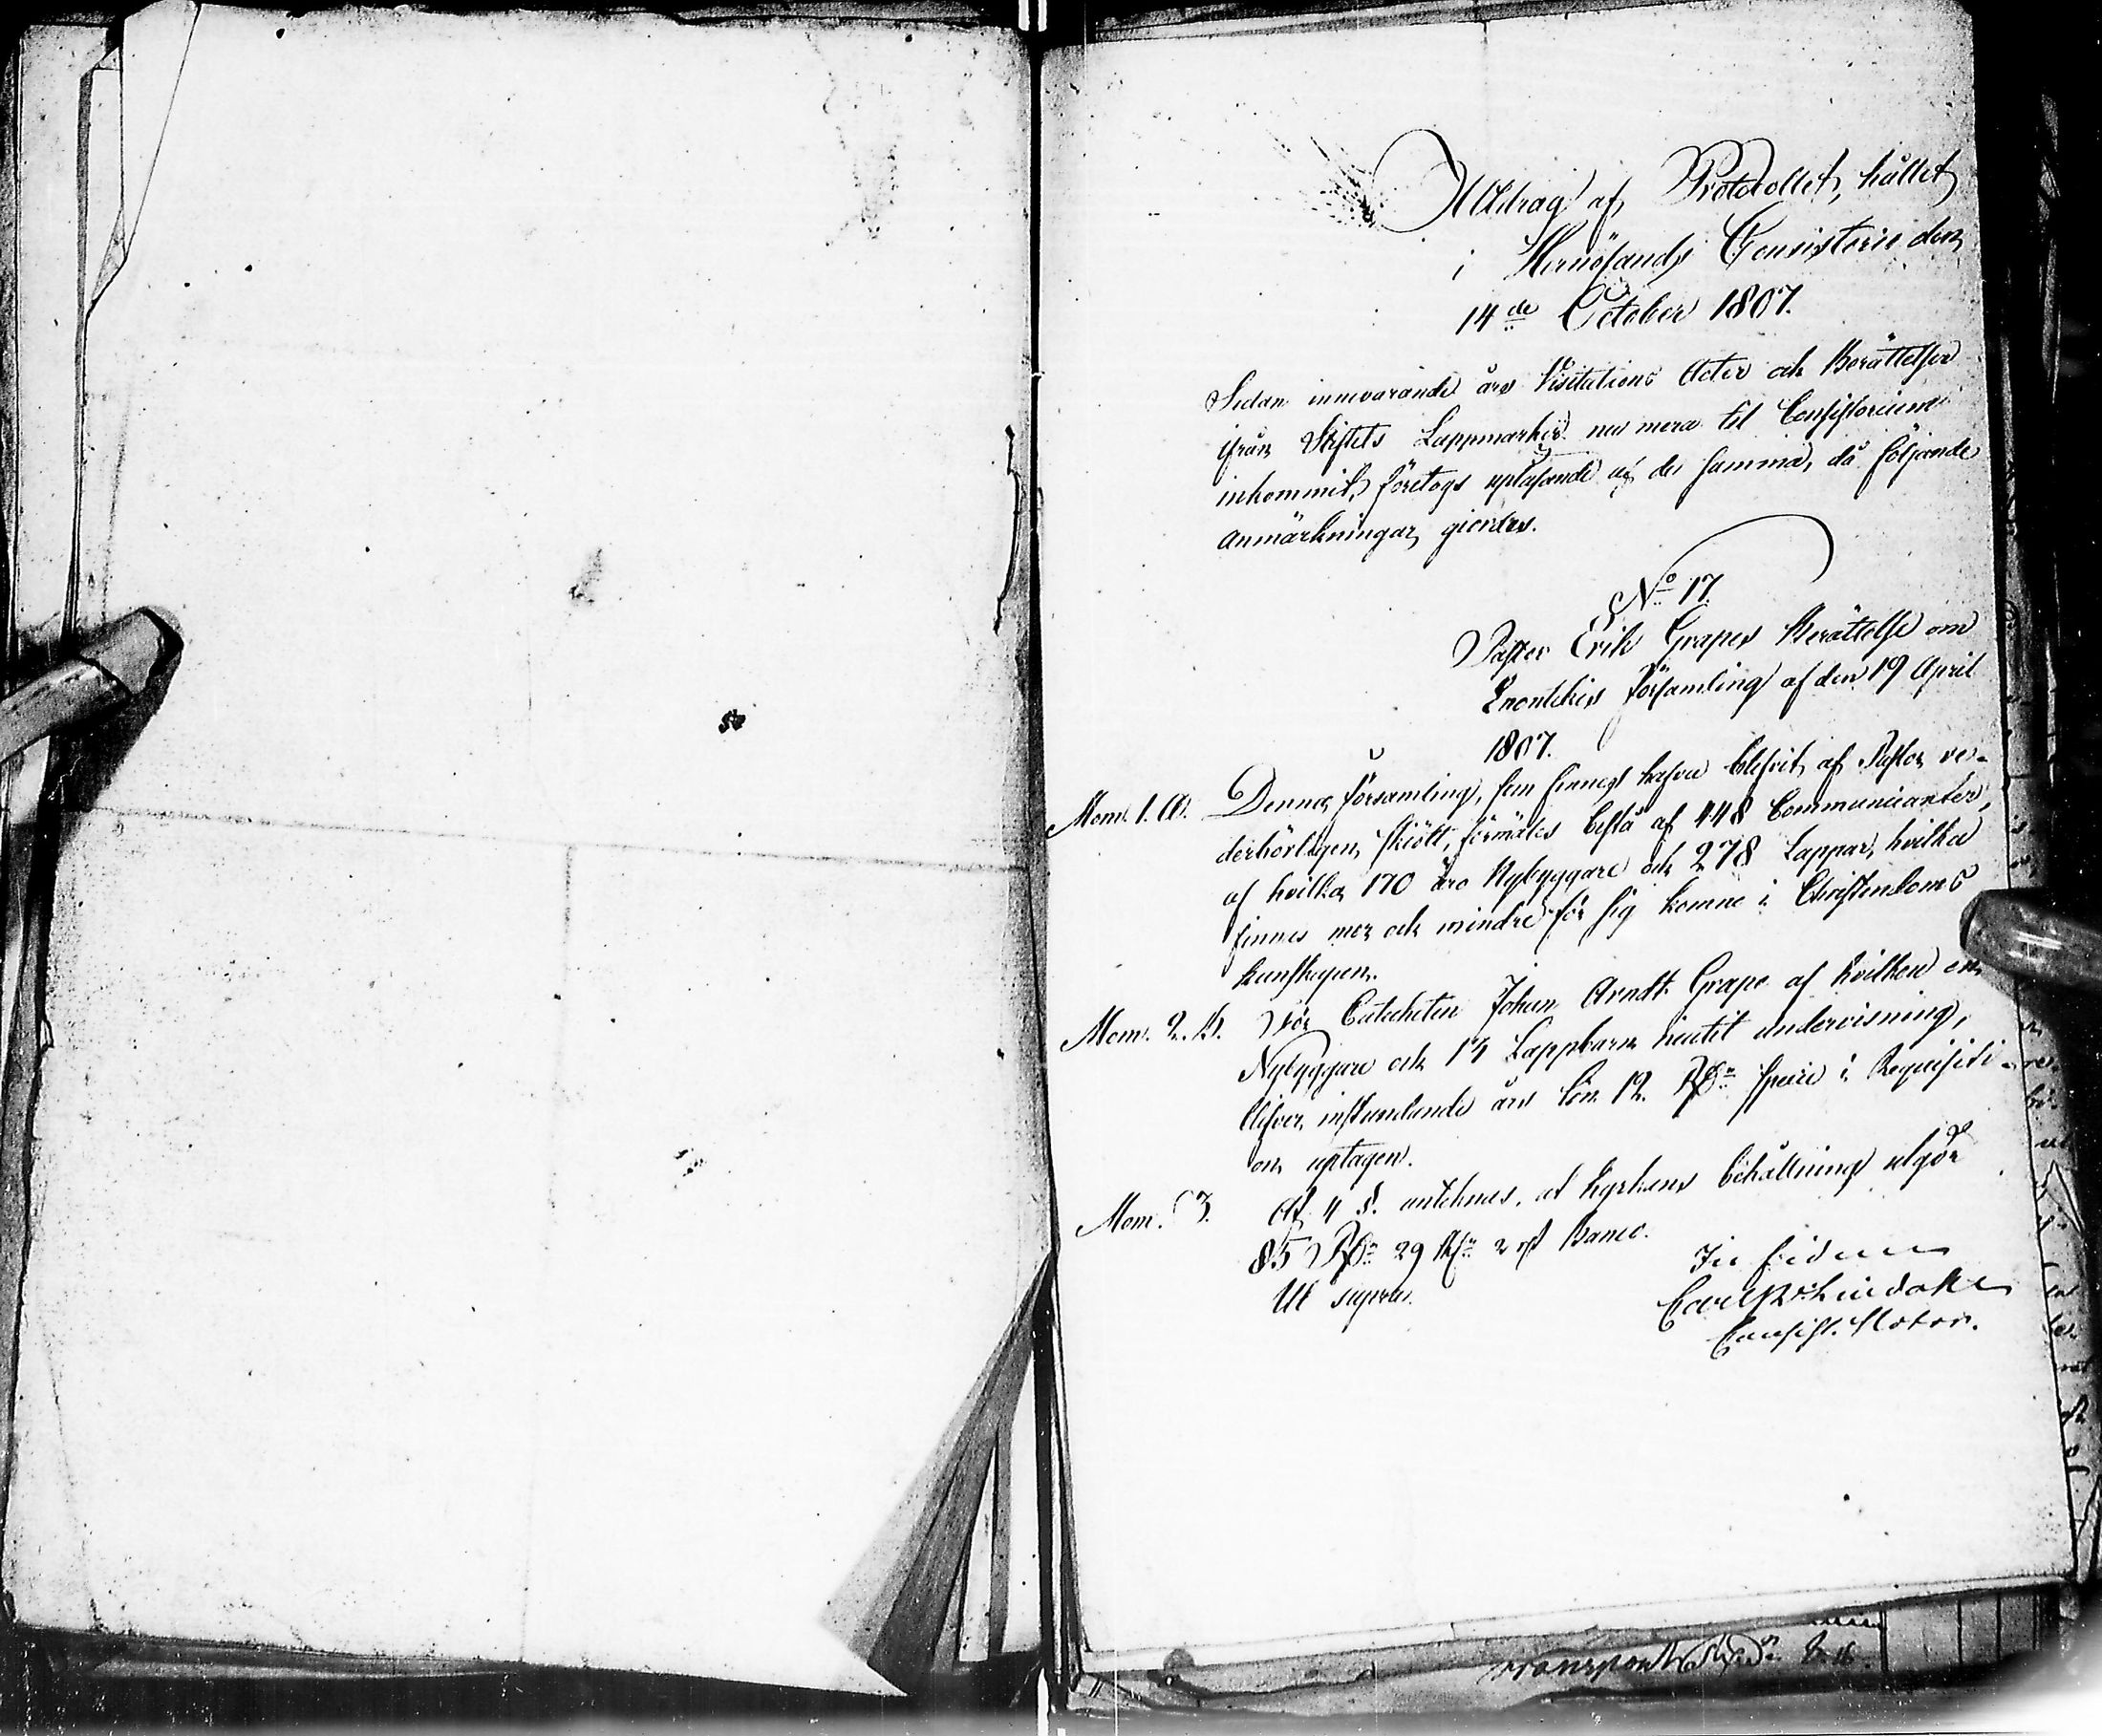 Utdrag af Protocollet, hållet
i Hernösands Consistorie den
14de October 1807.
Sedan innevarande års Visitations Acter och Berättelser
ifrån Stiftets Lappmarker nu mera til Consistorium
inkommit, företogs uplåsande af de samma, då följande
anmärkningar giordes.
No 17.
Pastor Erik Grapes Berättelse om
Enontekis Församling af den 19 April
1807.
Mom. 1. a. Denna församling, som finnes hafva blifvit af Pastor ve-
derbörligen skiött, förmäles bestå af 448 Communicanter,
af hvilka 170 äro Nybyggare och 278 Lappar, hvilka
finnes mer och mindre för sig komne i Christendoms
kunskapen.
Mom. 2. b. För Catecheten Johan Arndt Grape af hvilken en
Nybyggare och 14 Lappbarn niutit undervisning,
blifver instundande års lön 12 Rd specie i Requisiti-
on uptagen.
Mom. 3. Af 4 §. antecknas, at kyrkans behållning utgör
85 Rd 29 sk 2 rst Banco.
Ut supra.
In fidem
Lindahl
Consist. Notar.